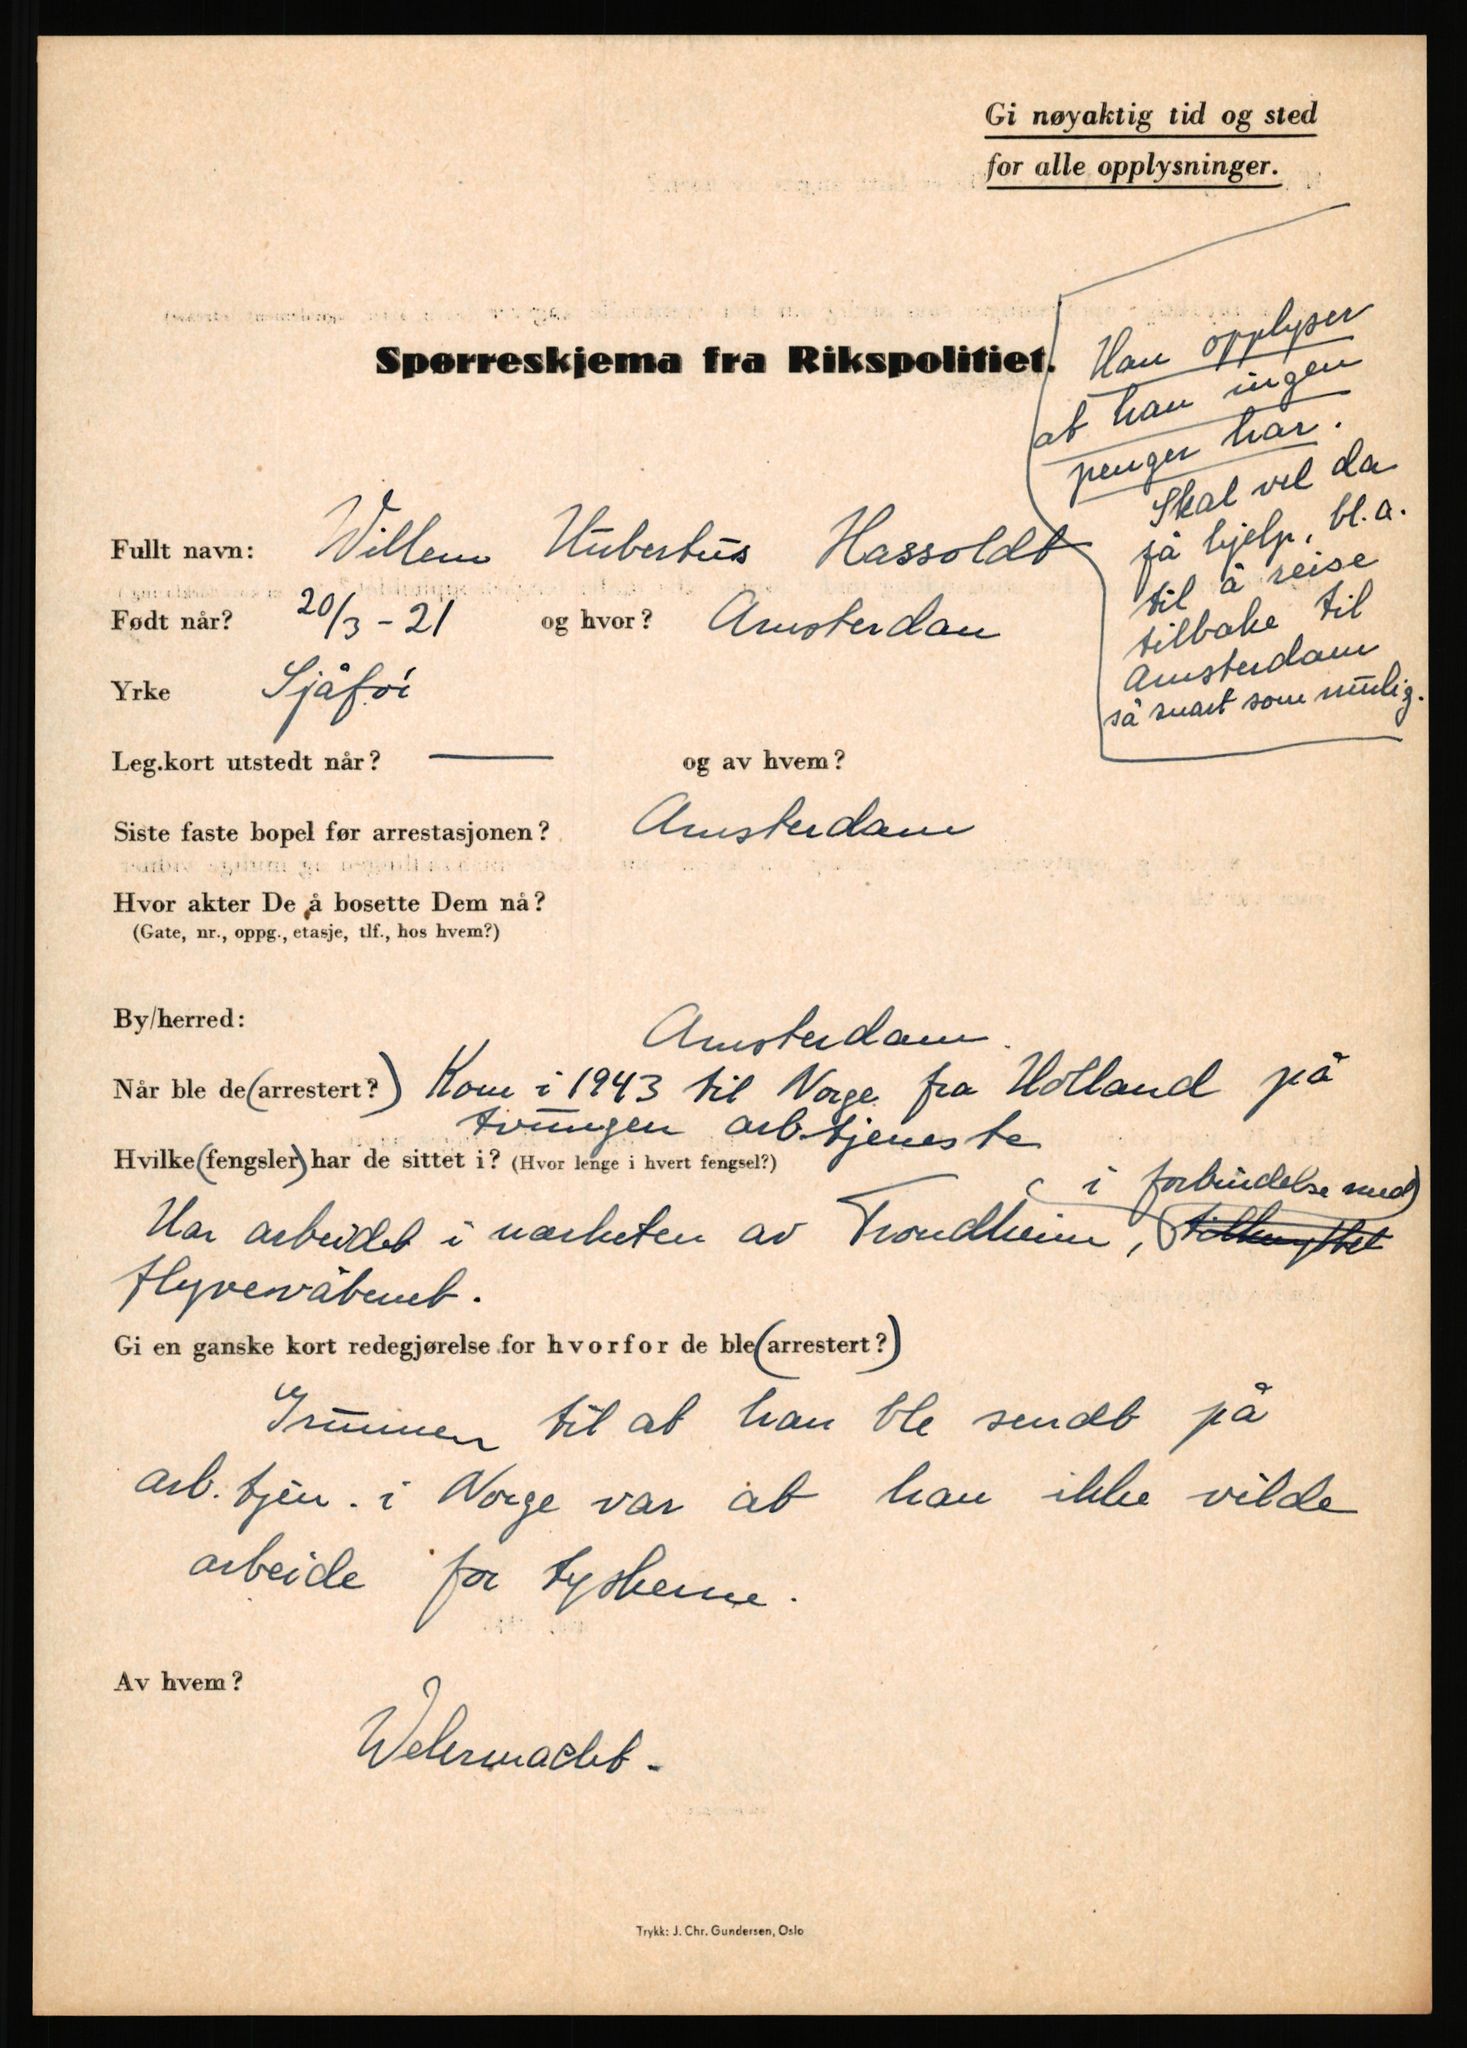 Gi nøyaktig tid og sted
for alle opplysninger.
Spørreskjema fra Rikspolitiet.
Han opplyser
at han ingen
penger har.
Skal vel da
få hjelp, bl.a.
til å reise
tilbake til
Amsterdam
så snart som mulig.
Fullt navn: Willem Hubertus Hassoldt
Født når? 20/3-21 og hvor? Amsterdam
Yrke Sjåfør
Leg.kort utstedt når? — og av hvem?
Siste faste bopel før arrestasjonen? Amsterdam
Hvor akter De å bosette Dem nå?
(Gate, nr., oppg., etasje, tlf., hos hvem?)
By/herred: Amsterdam.
Når ble de (arrestert?) Kom i 1943 til Norge fra Holland på
tvungen arb.tjeneste
Hvilke (fengsler) har de sittet i? (Hvor lenge i hvert fengsel?)
i forbindelse med
Har arbeidet i nærheten av Trondheim, tilknyttet
flyvevåbnet.
Gi en ganske kort redegjørelse for hvorfor de ble (arrestert?)
Grunnen til at han ble sendt på
arb. tjen. i Norge var at han ikke vilde
arbeide for tyskerne.
Av hvem?
Wehrmacht.
Trykk: J. Chr. Gundersen, Oslo